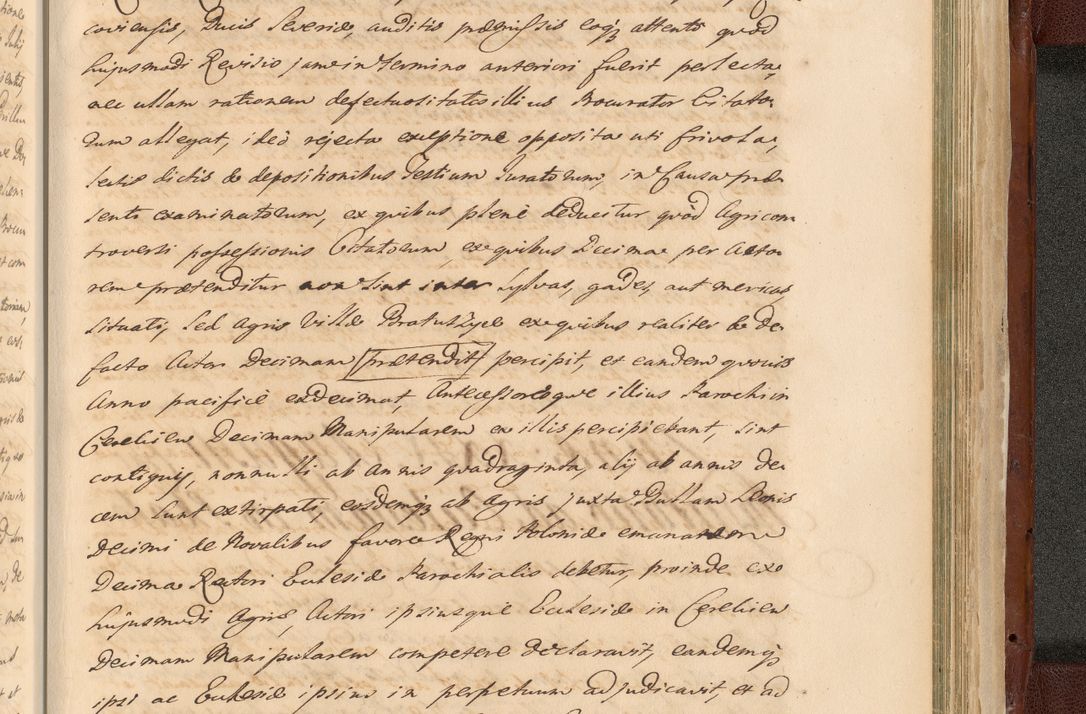 coviensis, Ducis Severiæ, auditis præmissis eoq; attento quod
hujusmodi Revisio jam in termino anteriori fuerit perlecta,
nec ullam rationem defectuositatis illius Procurator Citato-
rum allegat, ideò rejecta exceptione opposita uti frivola,
lectis dictis & depositionibus Testium Juratorum, in Causa præ-
senti examinatorum, ex quibus plenè deducitur quòd Agri con-
troversi possessionis Citatorum, ex quibus Decima per Acto-
rem prætenditur non sint inter Sylvas, gades, aut mericas,
situati, sed Agris Villæ ex quibus realiter & de
facto Actor Decimam prætendit percipit, et eandem quovis
Anno pacificè exdecimat, Antecessoresque illius Parochi in
Decimam Manipularem ex illis percipiebant, sint
contigui, nonnulli ab annis quadraginta, alij ab annis de-
cem sunt extirpati, eosdemq; ab Agris juxta Bullam Leonis
Decimi de Novalibus favore Regni Poloniæ emanatam
Decima Rectori Ecclesiæ Parochialis debetur, proinde ex
hujusmodi Agris, Actori ipsiusque Ecclesiæ in
Decimam Manipularem competere declaravit, eandemq;
ipsi ac Ecclesiæ ipsius in perpetuum adjudicavit, et ad